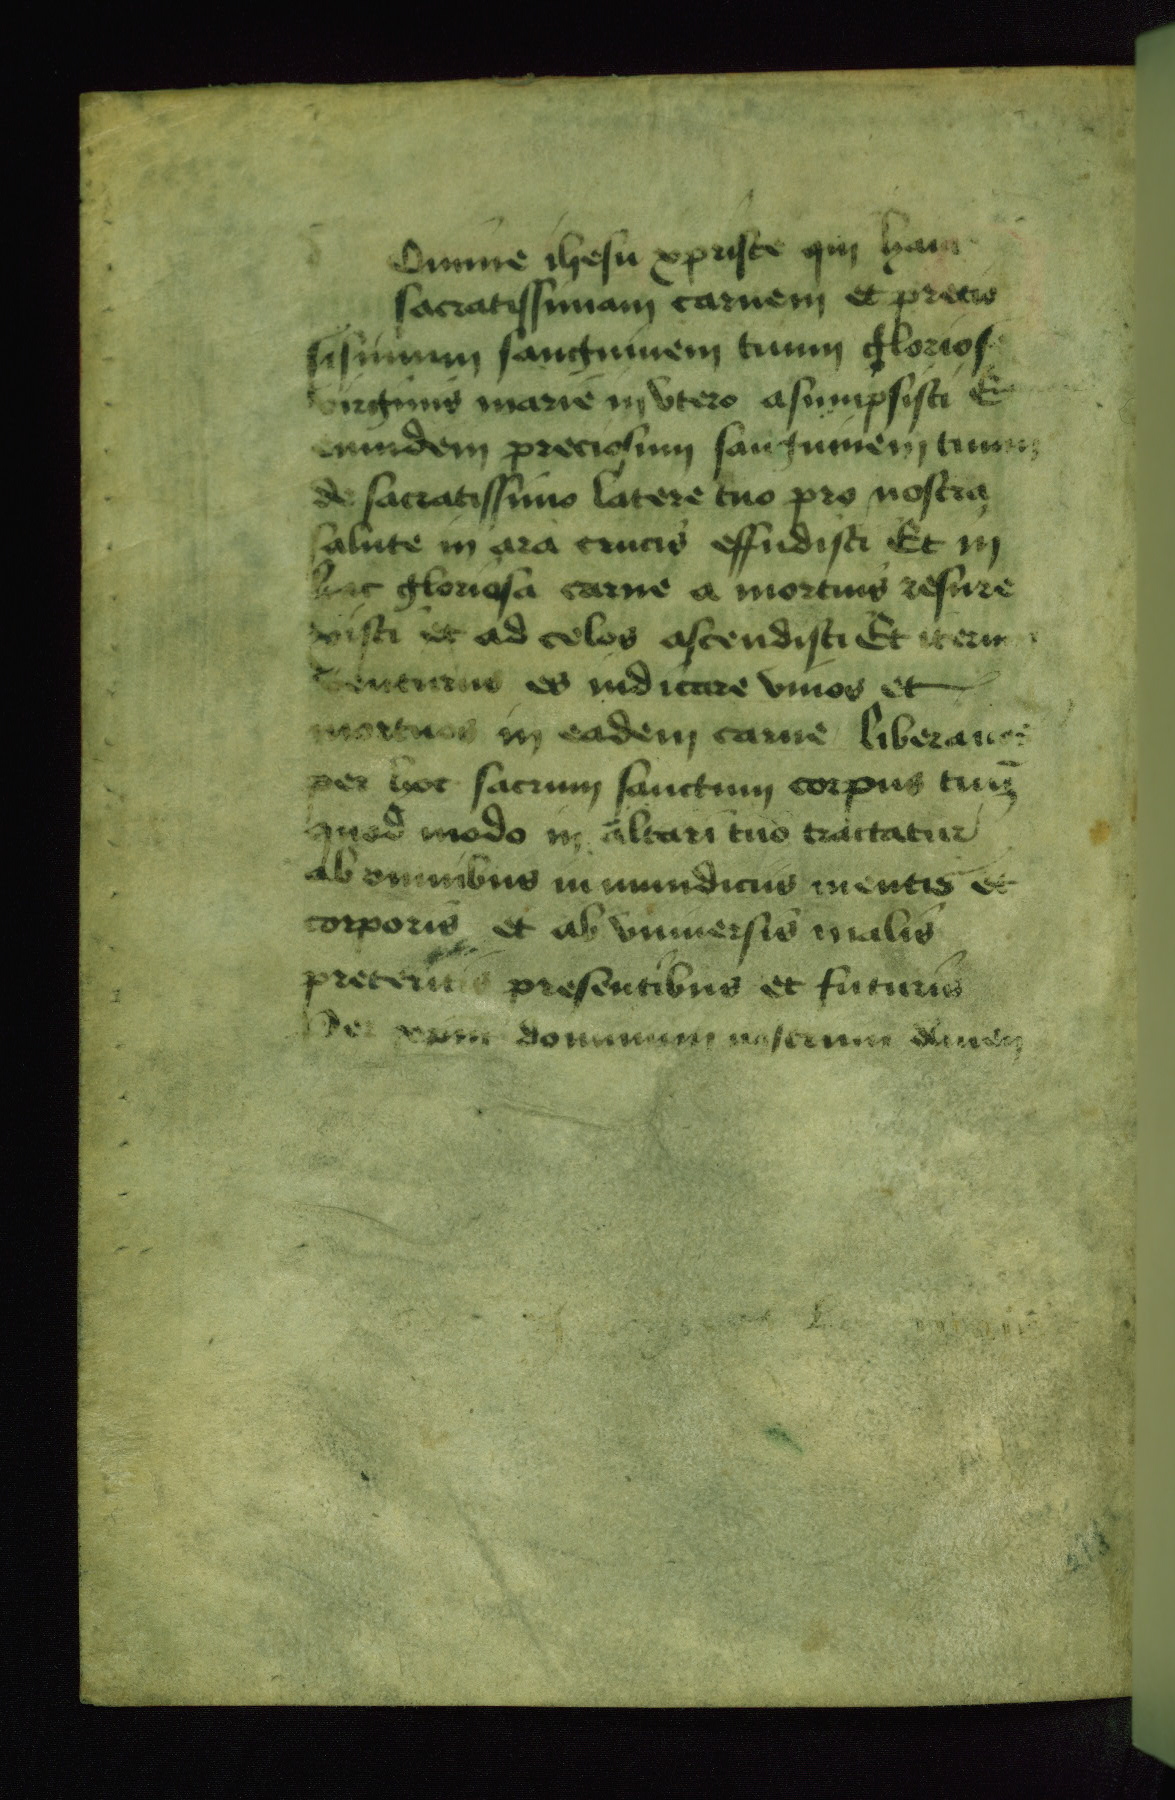 Omine ihesu xpriste qui hanc
sacratissimam carnem et precio
sisimum sanguinem tuum glorios
virginis marie in vtero asumpsisti Et
eumdem preciosum sanguinem tuum
de sacratissimo latere tuo pro nostra
salute in ara crucis effudisti Et in
hac gloriosa carne a mortuis resure
xisti et ad celos ascendisti Et iterum
venturus es iudicare viuos et
mortuos in eadem carne libera nos
per hoc sacrum sanctum corpus tuum
quod modo in altari tuo tractatur
ab omnibus inmundiciis mentis et
corporis et ab vniuersis malis
preteritis presentibus et futuris
Per xpm dominum nostrum Amen